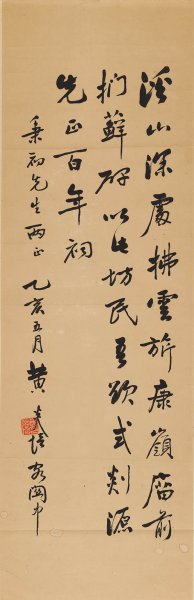 溪山深處拂雲旂康嶺庿前
捫蘚碑以坊民吾欲式剡源
先正百年祠
秉初先生兩正 乙亥五月 黃炎培 客閩中